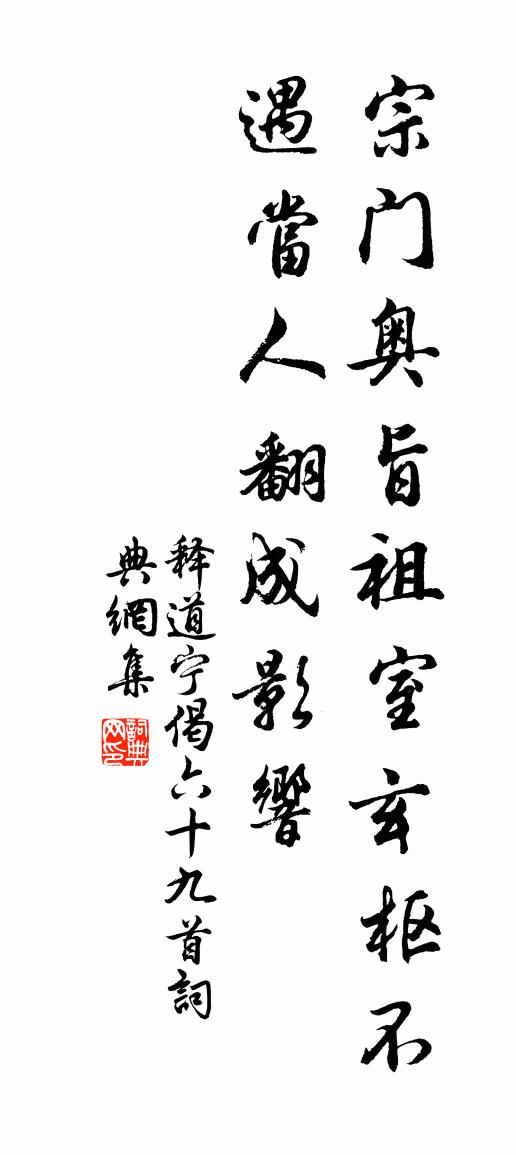 宗门奥旨祖室玄枢不
遇當人翻成影響
释道宁偈六十九首詞
典網集
詞典网印